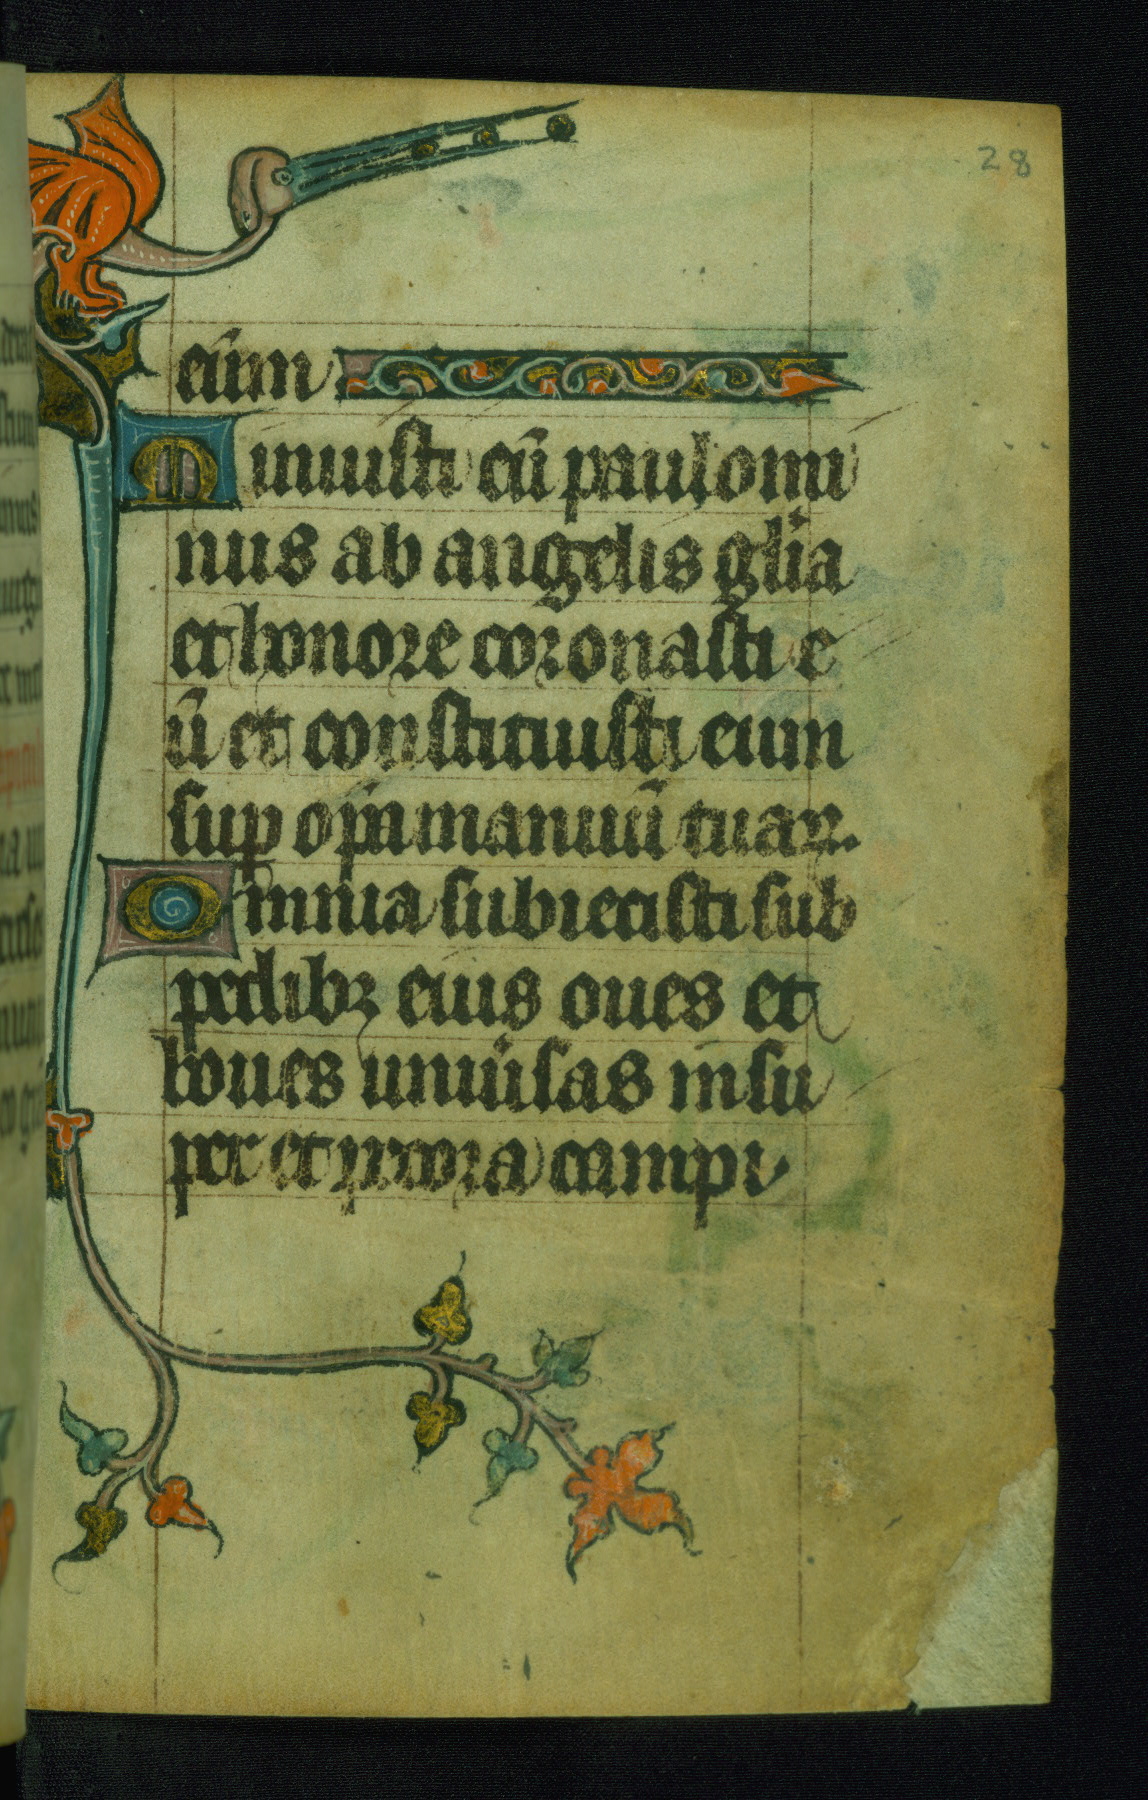 28
eūm
Minuisti eū paulomi
nus ab angelis glīa
et honore coronasti e
ū et constituisti eum
sup op̄a manuū tuaꝝ.
Omnia subiecisti sub
pedibꝫ eius oues et
boues uniu̓sas insu
per et pecora campi